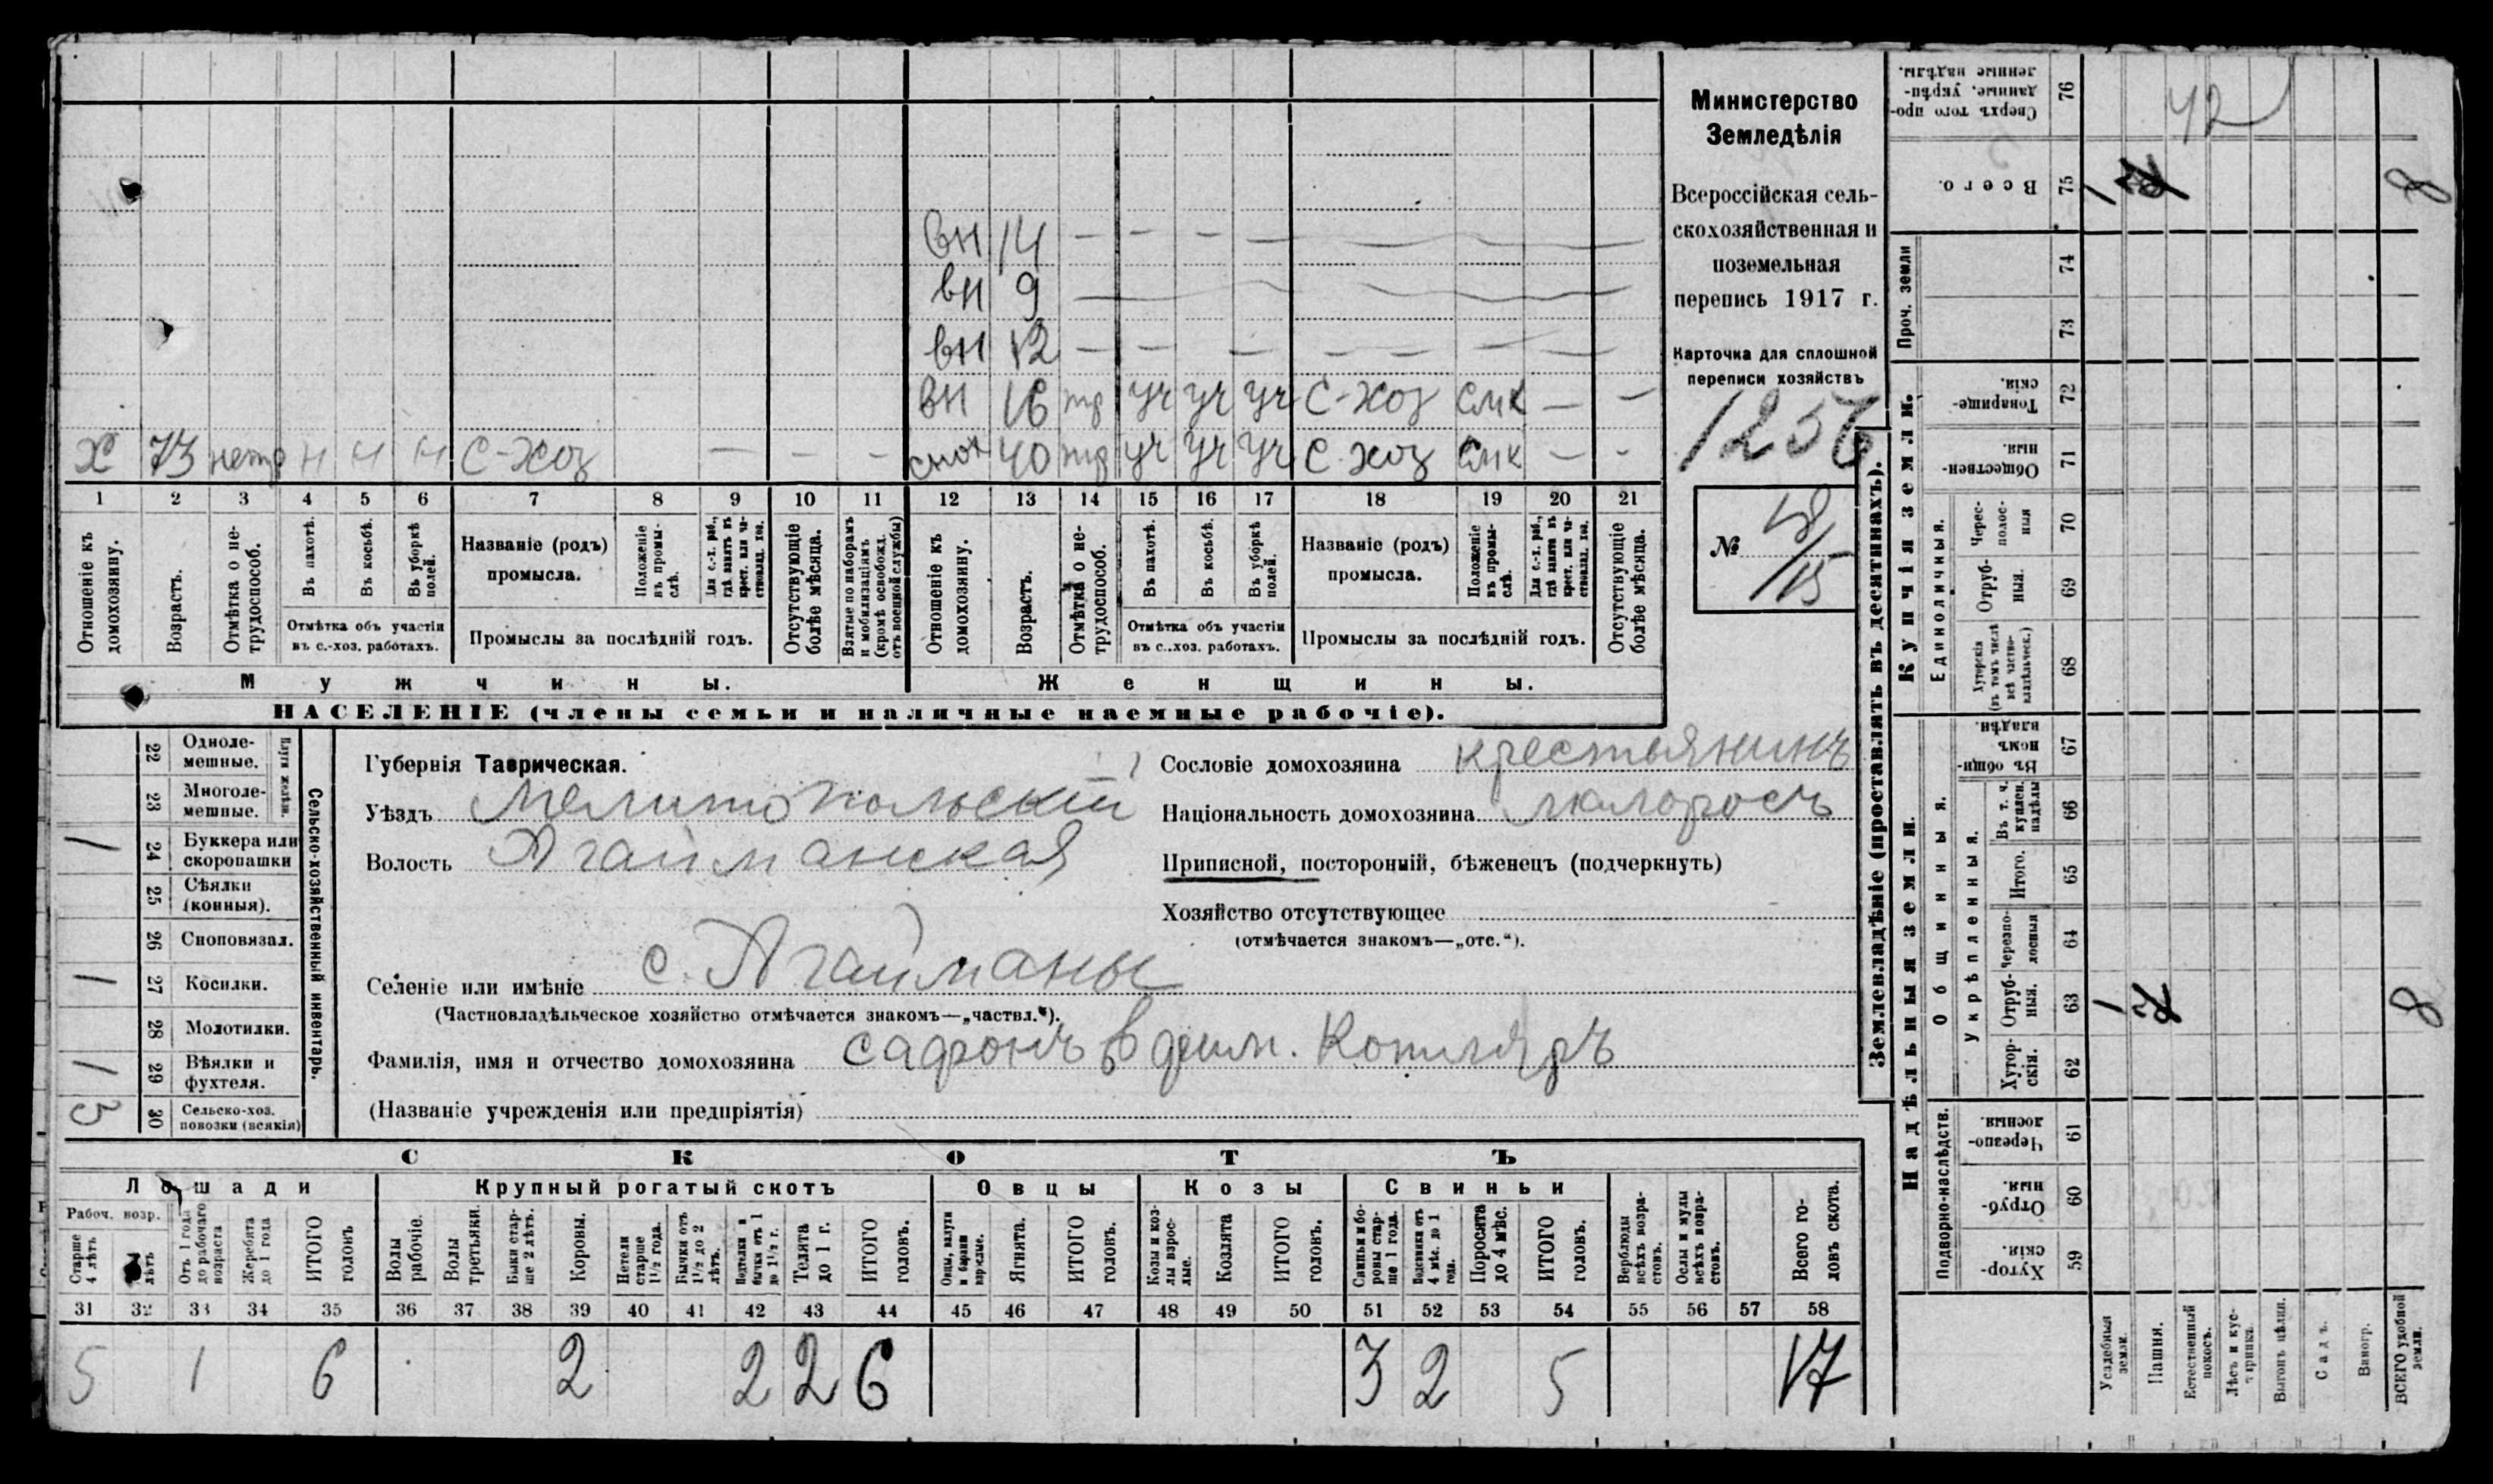 Министерство
Земледѣлія
Всероссійская сель-
скохозяйственная и
поземельная
перепись 1917 г.
Карточка для сплошной
переписи хозяйствъ
125
№ 48/15
вн 14 — — — — — — —
вн 9 — — — —
вн 12 — — — — — — —
вн 16 тр уч уч уч С-хоз смк — —
Х 73 нетр н н н С-хоз — — —
снох 40 тр уч уч уч С-хоз смк — -
1 2 3 4 5 6 7 8 9 10 11 12 13 14 15 16 17 18 19 20 21
Отношеніе къ домохозяину.
Возрастъ.
Отмѣтка о не-трудоспособ.
Въ пахотѣ.
Въ косьбѣ.
Въ уборкѣ полей.
Отмѣтка объ участіи
въ с.-хоз. работахъ.
Названіе (родъ)
промысла.
Положеніе въ промы-слѣ.
Для с.-х. раб., гдѣ занятъ въ крест. или ча-стновлад. хоз.
Промыслы за послѣдній годъ.
Отсутствующіе болѣе мѣсяца.
Взятые по наборамъ и мобилизаціямъ (кромѣ освобожд. отъ военной службы)
Отношеніе къ домохозяину.
Возрастъ.
Отмѣтка о не-трудоспособ.
Въ пахотѣ.
Въ косьбѣ.
Въ уборкѣ полей.
Отмѣтка объ участіи
въ с..хоз. работахъ.
Названіе (родъ)
промысла.
Положеніе въ промы-слѣ.
Для с.-х. раб., гдѣ занята въ крест. или ча-стновлад. хоз.
Промыслы за послѣдній годъ.
Отсутствующіе болѣе мѣсяца.
Мужчины.
Женщины.
НАСЕЛЕНІЕ (члены семьи и наличные наемные рабочіе).
Сельско-хозяйственный инвентарь.
Плуги желѣзн.
22 Одноле-мешные.
23 Многоле-мешные.
1 24 Буккера или скоропашки
25 Сѣялки (конныя).
26 Сноповязал.
1 27 Косилки.
28 Молотилки.
1 29 Вѣялки и фухтеля.
3 30 Сельско-хоз. повозки (всякія)
Губернія Таврическая.
Уѣздъ Мелитопольскій
Волость Агайманская
Сословіе домохозяина крестьянинъ
Національность домохозяина малоросъ
Приписной, посторонній, бѣженецъ (подчеркнуть)
Хозяйство отсутствующее
(отмѣчается знакомъ—„отс.“).
Селеніе или имѣніе с. Агайманы
(Частновладѣльческое хозяйство отмѣчается знакомъ—„частвл.“).
Фамилія, имя и отчество домохозяина Сафонъ Копиляръ
(Названіе учрежденія или предпріятія)
СКОТЪ
Лошади
Крупный рогатый скотъ
Овцы
Козы
Свиньи
Рабоч. возр.
Старше 4 лѣтъ
лѣтъ
Отъ 1 года до рабочаго возраста
Жеребята до 1 года
ИТОГО головъ.
Волы рабочіе.
Волы третьяки.
Быки стар-ше 2 лѣтъ.
Коровы.
Нетели старше 1½ года.
Бычки отъ 1½ до 2 лѣтъ.
Подтелки и бычки отъ 1 до 1½ г.
Телята до 1 г.
ИТОГО головъ.
Овцы, валухи и бараны взрослые.
Ягнята.
ИТОГО головъ.
Козы и коз-лы взрос-лые.
Козлята
ИТОГО головъ.
Свиньи и бо-ровы стар-ше 1 года.
Подсвинки отъ 4 мѣс. до 1 года.
Поросята до 4 мѣс.
ИТОГО головъ.
Верблюды всѣхъ возра-стовъ.
Ослы и мулы всѣхъ возра-стовъ.
Всего го-ловъ скота.
31 32 33 34 35 36 37 38 39 40 41 42 43 44 45 46 47 48 49 50 51 52 53 54 55 56 57 58
5 1 6 2 2 2 6 3 2 5 17
Землевладѣніе (проставлять въ десятинахъ).
Купчія земли.
Надѣльныя земли.
Проч. земли
Единоличныя.
Общинныя.
Укрѣпленныя.
Подворно-наслѣдств.
76 Сверхъ того про-данные, укрѣп-ленные надѣлы. 42
75 Всего. 1 8
74
73
72 Товарище-скія.
71 Обществен-ныя.
70 Черес-полос-ныя
69 Отруб-ныя.
68 Хуторскія (въ томъ числѣ всѣ частно-владѣльческ.)
67 Въ общи-номъ владѣн.
66 Въ т. ч. куплен. надѣлы
65 Итого.
64 Черезпо-лосныя
63 Отруб-ныя. 1 8
62 Хутор-скія.
61 Черезпо-лосныя.
60 Отруб-ныя.
59 Хутор-скія.
Усадебныя земли.
Пашня.
Естественный покосъ.
Лѣсъ и кус-тарникъ.
Выгонъ цѣлин.
Садъ.
Виногр.
ВСЕГО удобной земли.